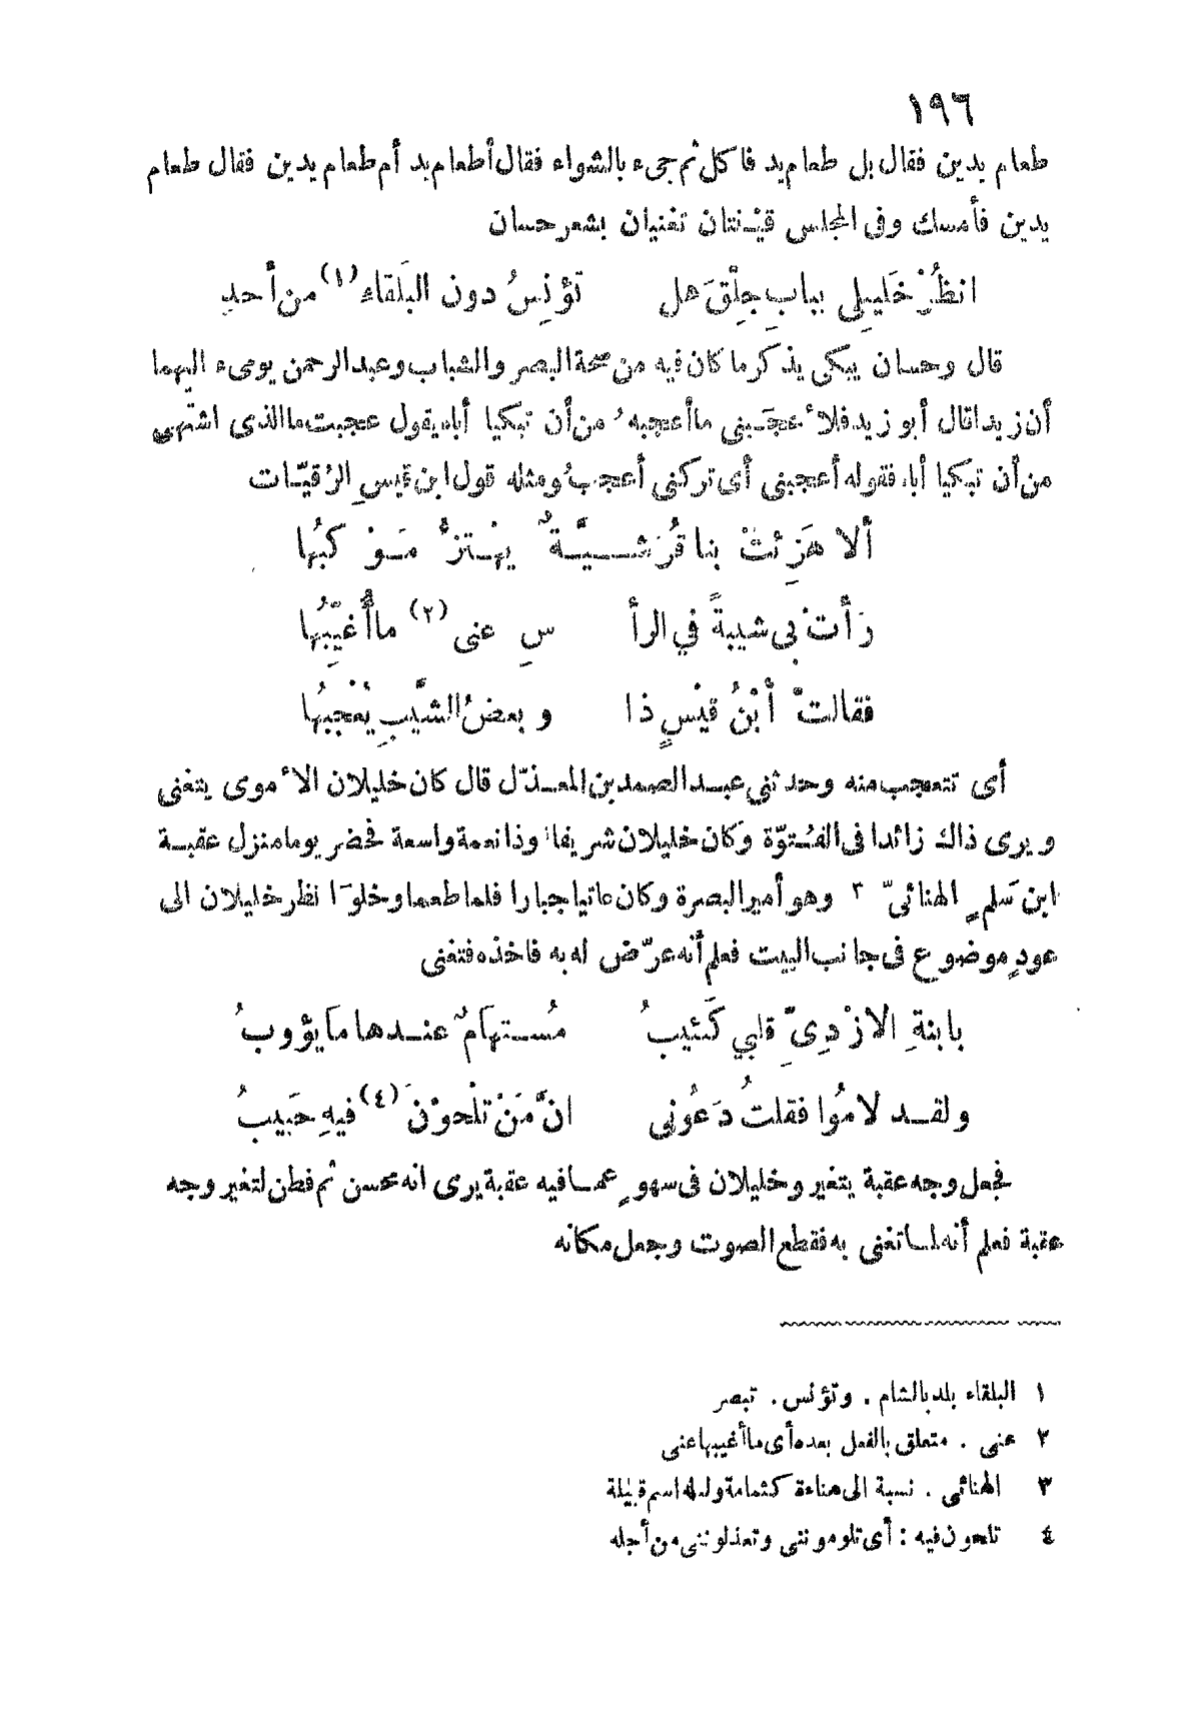 ١٩٦
طعام يدين فقال بل طعام يد فاكل ثم جىء بالشواء فقال أطعام يد أم طعام يدين فقال طعام
يدين فأمسك وفى المجلس قيْنتان تغنيان بشعر حسان
انظُرْ خَليلِى ببابِ جِلّقَ هل تؤنِسُ دون البَلقاءِ (١) من أحدِ
قال وحسان يبكى يذكر ما كان فيه من صحة البصر والشباب وعبد الرحمن يومىء اليهما
أن زيدا قال أبو زيد فلأعجَبنى ما أعجبهُ من أن تبكيا أباه يقول عجبت ما الذى اشتهى
من أن تبكيا أباه فقوله أعجبنى أى تركنى أعجبُ ومثله قول ابن قيسِ الرُقيّات
ألا هَزِئتْ بنا قُرَشيَّةٌ يهْتزُّ مَوْكبُها
رَأتْ بى شيبةً في الرأ سِ عنى (٢) ما أُغيّبُها
فقالتْ أبْنُ قيْسٍ ذا وبعضُ الشَّيبِ يُعْجبُها
أى تتعجب منه وحدثني عبد الصمد بن المعذّل قال كان خليلان الأموى يتغنى
ويرى ذلك زائدا فى الفُتوّة وكان خليلان شريفا وذا نعمة واسعة فحضر يوما منزل عقبة
ابن سَلمٍ الهنائىّ ٣ وهو أمير البصرة وكان عاتيا جبارا فلما طعما وخلوَا نظر خليلان الى
عودٍ موضوع فى جانب البيت فعلم أنه عرّض له به فاخذه فتغنى
بابنةِ الازْدِىِّ قلبي كَئيبُ مُستهَامٌ عندها مَا يؤوبُ
ولقد لامُوا فقلتُ دَعُونى انَّ مَنْ تلْحوْنَ (٤) فيهِ حَبيبُ
فجعل وجه عقبة يتغير وخليلان فى سهوٍ عما فيه عقبة يرى انه محسن ثم فطن لتغير وجه
عقبة فعلم أنه لما تغنى به فقطع الصوت وجعل مكانه
١ البلقاء بلد بالشام . وتؤنس . تبصر
٢ عنى . متعلق بالفعل بعده أى ما أغيبها عنى
٣ الهنائى . نسبة الى هناءة كثمامة ولعله اسم قبيلة
٤ تلحون فيه : أى تلوموننى وتعذلوننى من أجله